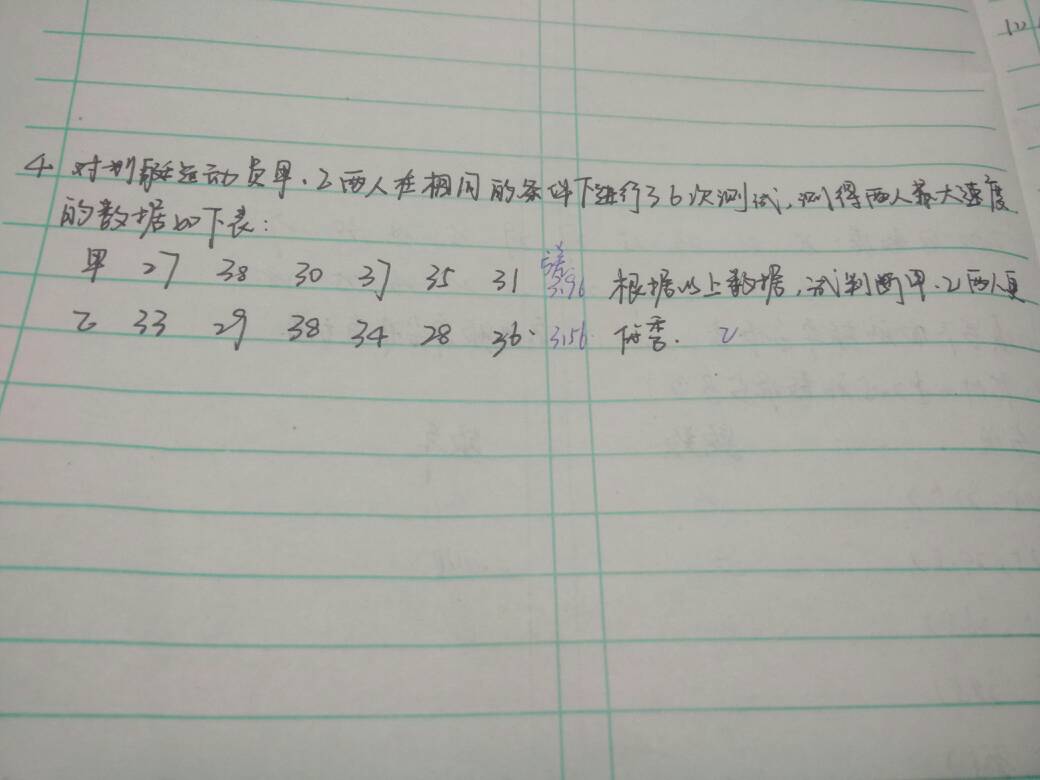 4. 对划艇运动员甲、乙两人在相同的条件下进行了6次测试,测得两人最大速度
的数据如下表:
甲 27 38 30 37 35 31 3.96 根据以上数据,试判断甲、乙两人更
乙 33 29 38 34 28 36. 3.56 优秀. 乙